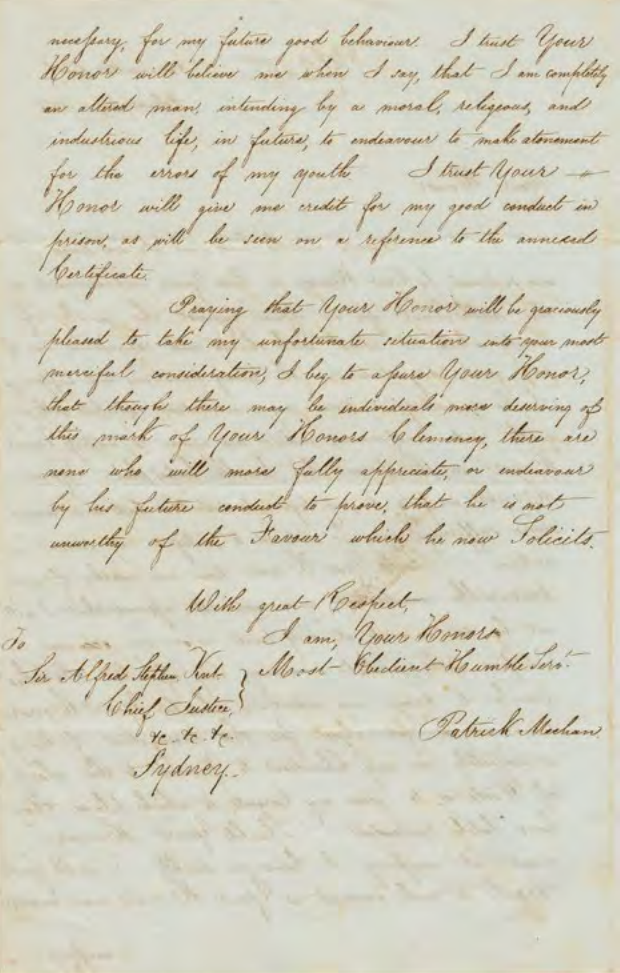 necessary, for my future good behaviour. I trust Your
Honor will believe me when I say, that I am completely
an altered man, intending by a moral, religious, and
industrious life, in future, to endeavour to make atonement
for the errors of my youth I trust Your —
Honor will give me credit for my good conduct in
prison, as will be seen on a reference to the annexed
Certificate.
Praying that Your Honor will be graciously
pleased to take my unfortunate situation into your most
merciful consideration, I beg to assure Your Honor,
that though there may be individuals more deserving of
this mark of Your Honors Clemency, there are
none who will more fully appreciate, or endeavour
by his future conduct to prove, that he is not
unworthy of the Favour which he now Solicits.
With great Respect,
I am, Your Honors
Most Obedient Humble Servt.
Patrick Meehan
To
Sir Alfred Stephen, Knt.
Chief Justice,
&c. &c. &c.
Sydney.